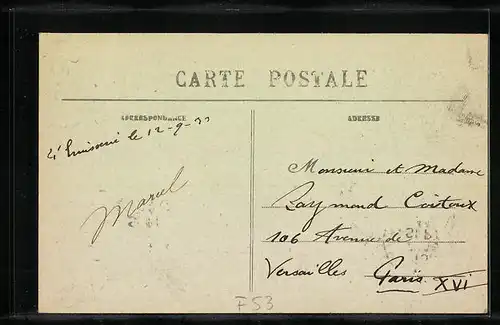 CARTE POSTALE
CORRESPONDANCE
ADRESSE
le 12-9-33
Marcel
Monsieur et Madame
Raymond
106 Avenue de
Versailles Paris XVI
F53